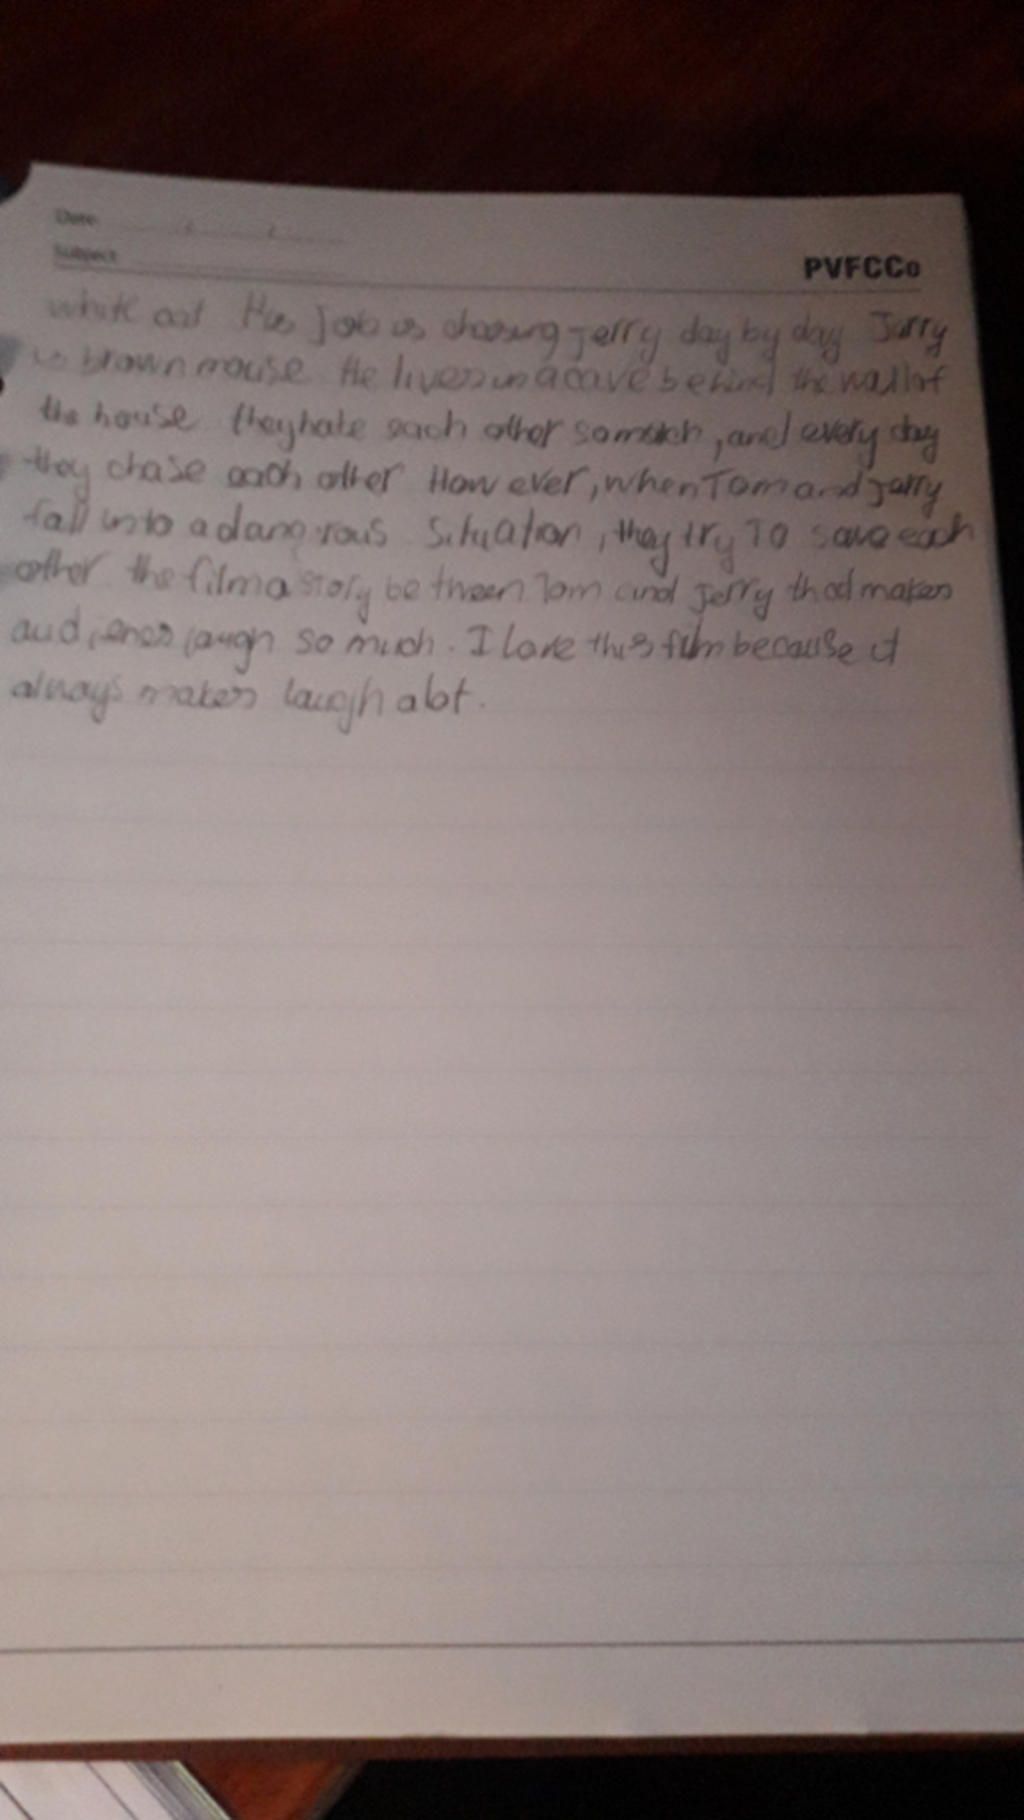 Date / /
Subject
PVFCCo
white cat His Job is chasing Jerry day by day Jarry
is brown mouse He lives in a cave behind the wall of
the house they hate each other so much, and every day
they chase each other However, when Tom and Jarry
fall into a dangrous situation, they try To save each
other the film a story between Tom and Jerry that makes
audiences laugh so much. I love this film because it
always makes laugh a lot.